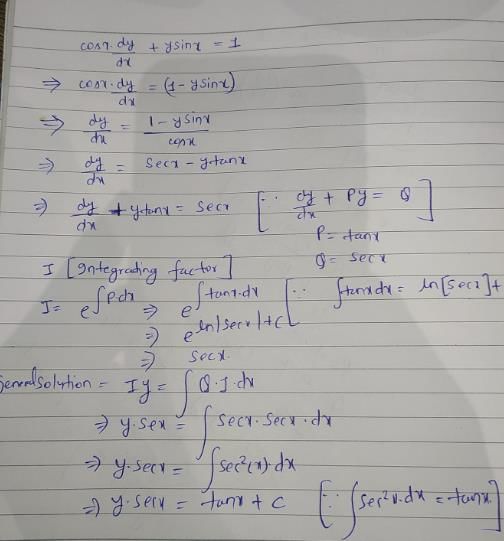 cosx. dy/dx + ysinx = 1
⇒ cosx. dy/dx = (1 - ysinx)
⇒ dy/dx = 1 - ysinx / cosx
⇒ dy/dx = secx - ytanx
⇒ dy/dx + ytanx = secx [∵ dy/dx + Py = Q]
P = tanx
Q = secx
I [Integrating factor]
I = e^∫P.dx ⇒ e^∫tanx.dx [∵ ∫tanxdx = ln[secx]+
⇒ e^ln|secx|+c
⇒ secx.
General Solution = Iy = ∫Q.I.dx
⇒ y.sex = ∫secx.secx.dx
⇒ y.secx = ∫sec²(x).dx
⇒ y.secx = tanx + c [∵ ∫sec²x.dx = tanx.]